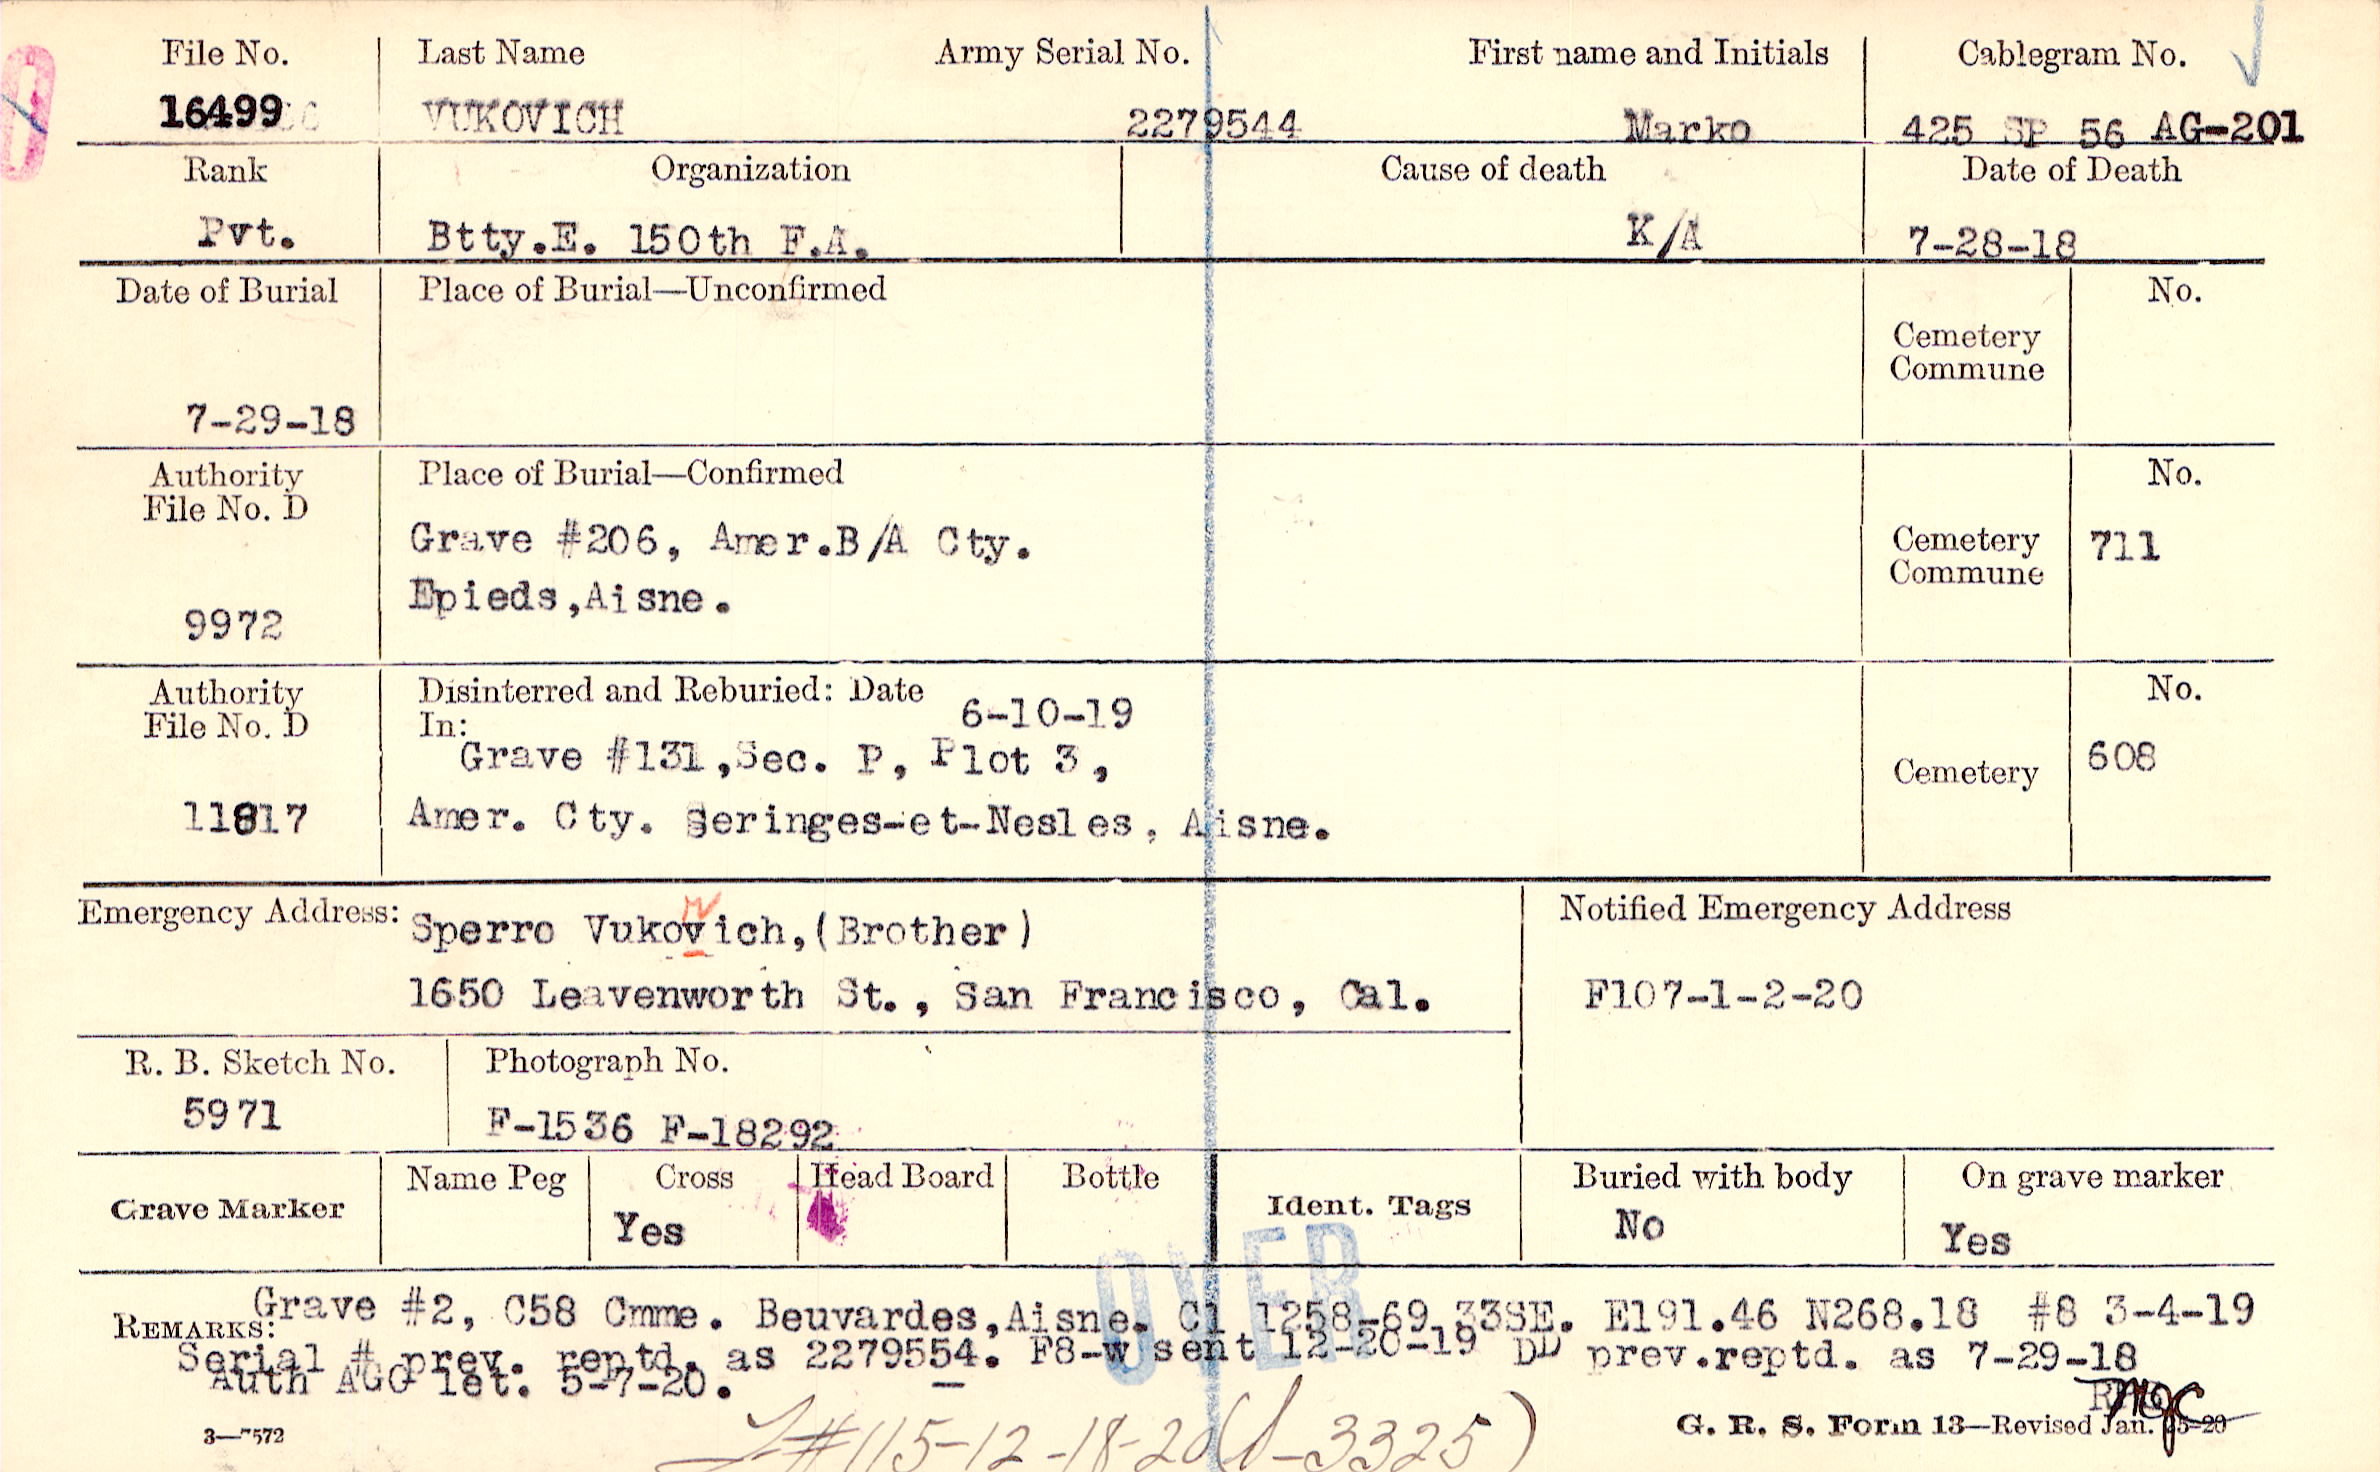 File No. Last Name Army Serial No. First name and Initials Cablegram No.
16499 VUKOVICH 2279544 Marko 425 SP 56 AG-201
Rank Organization Cause of death Date of Death
Pvt. Btty.E. 150th F.A. K/A 7-28-18
Date of Burial Place of Burial—Unconfirmed No.
Cemetery
Commune
7-29-18
Authority Place of Burial—Confirmed No.
File No. D
Grave #206, Amer.B/A Cty. Cemetery 711
Commune
Epieds,Aisne.
9972
Authority Disinterred and Reburied: Date 6-10-19 No.
File No. D In:
Grave #131,Sec. P, Plot 3, Cemetery 608
11817 Amer. Cty. Seringes-et-Nesles, Aisne.
Emergency Address: Sperro Vukovich,(Brother) Notified Emergency Address
v
1650 Leavenworth St., San Francisco, Cal. F107-1-2-20
R. B. Sketch No. Photograph No.
5971 F-1536 F-18292
Grave Marker Name Peg Cross Head Board Bottle Ident. Tags Buried with body On grave marker
Yes No Yes
OVER
REMARKS: Grave #2, C58 Cmme. Beuvardes,Aisne. Cl 1258-69 33SE. E191.46 N268.18 #8 3-4-19
Serial # prev. reptd. as 2279554. F8-w sent 12-20-19 DD prev.reptd. as 7-29-18
Auth AGO let. 5-7-20.
3—7572 G. R. S. Form 13—Revised Jan. 25-20
#115-12-18-20 3325)